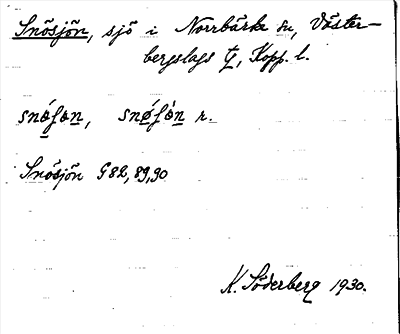 Snösjön, sjö i Norrbärke sn, Väster-
bergslags tg, Kopp. l.
snǿfən, snǿfø̀n r.
Snösjön G82, 89, 90
K. Söderberg 1930.